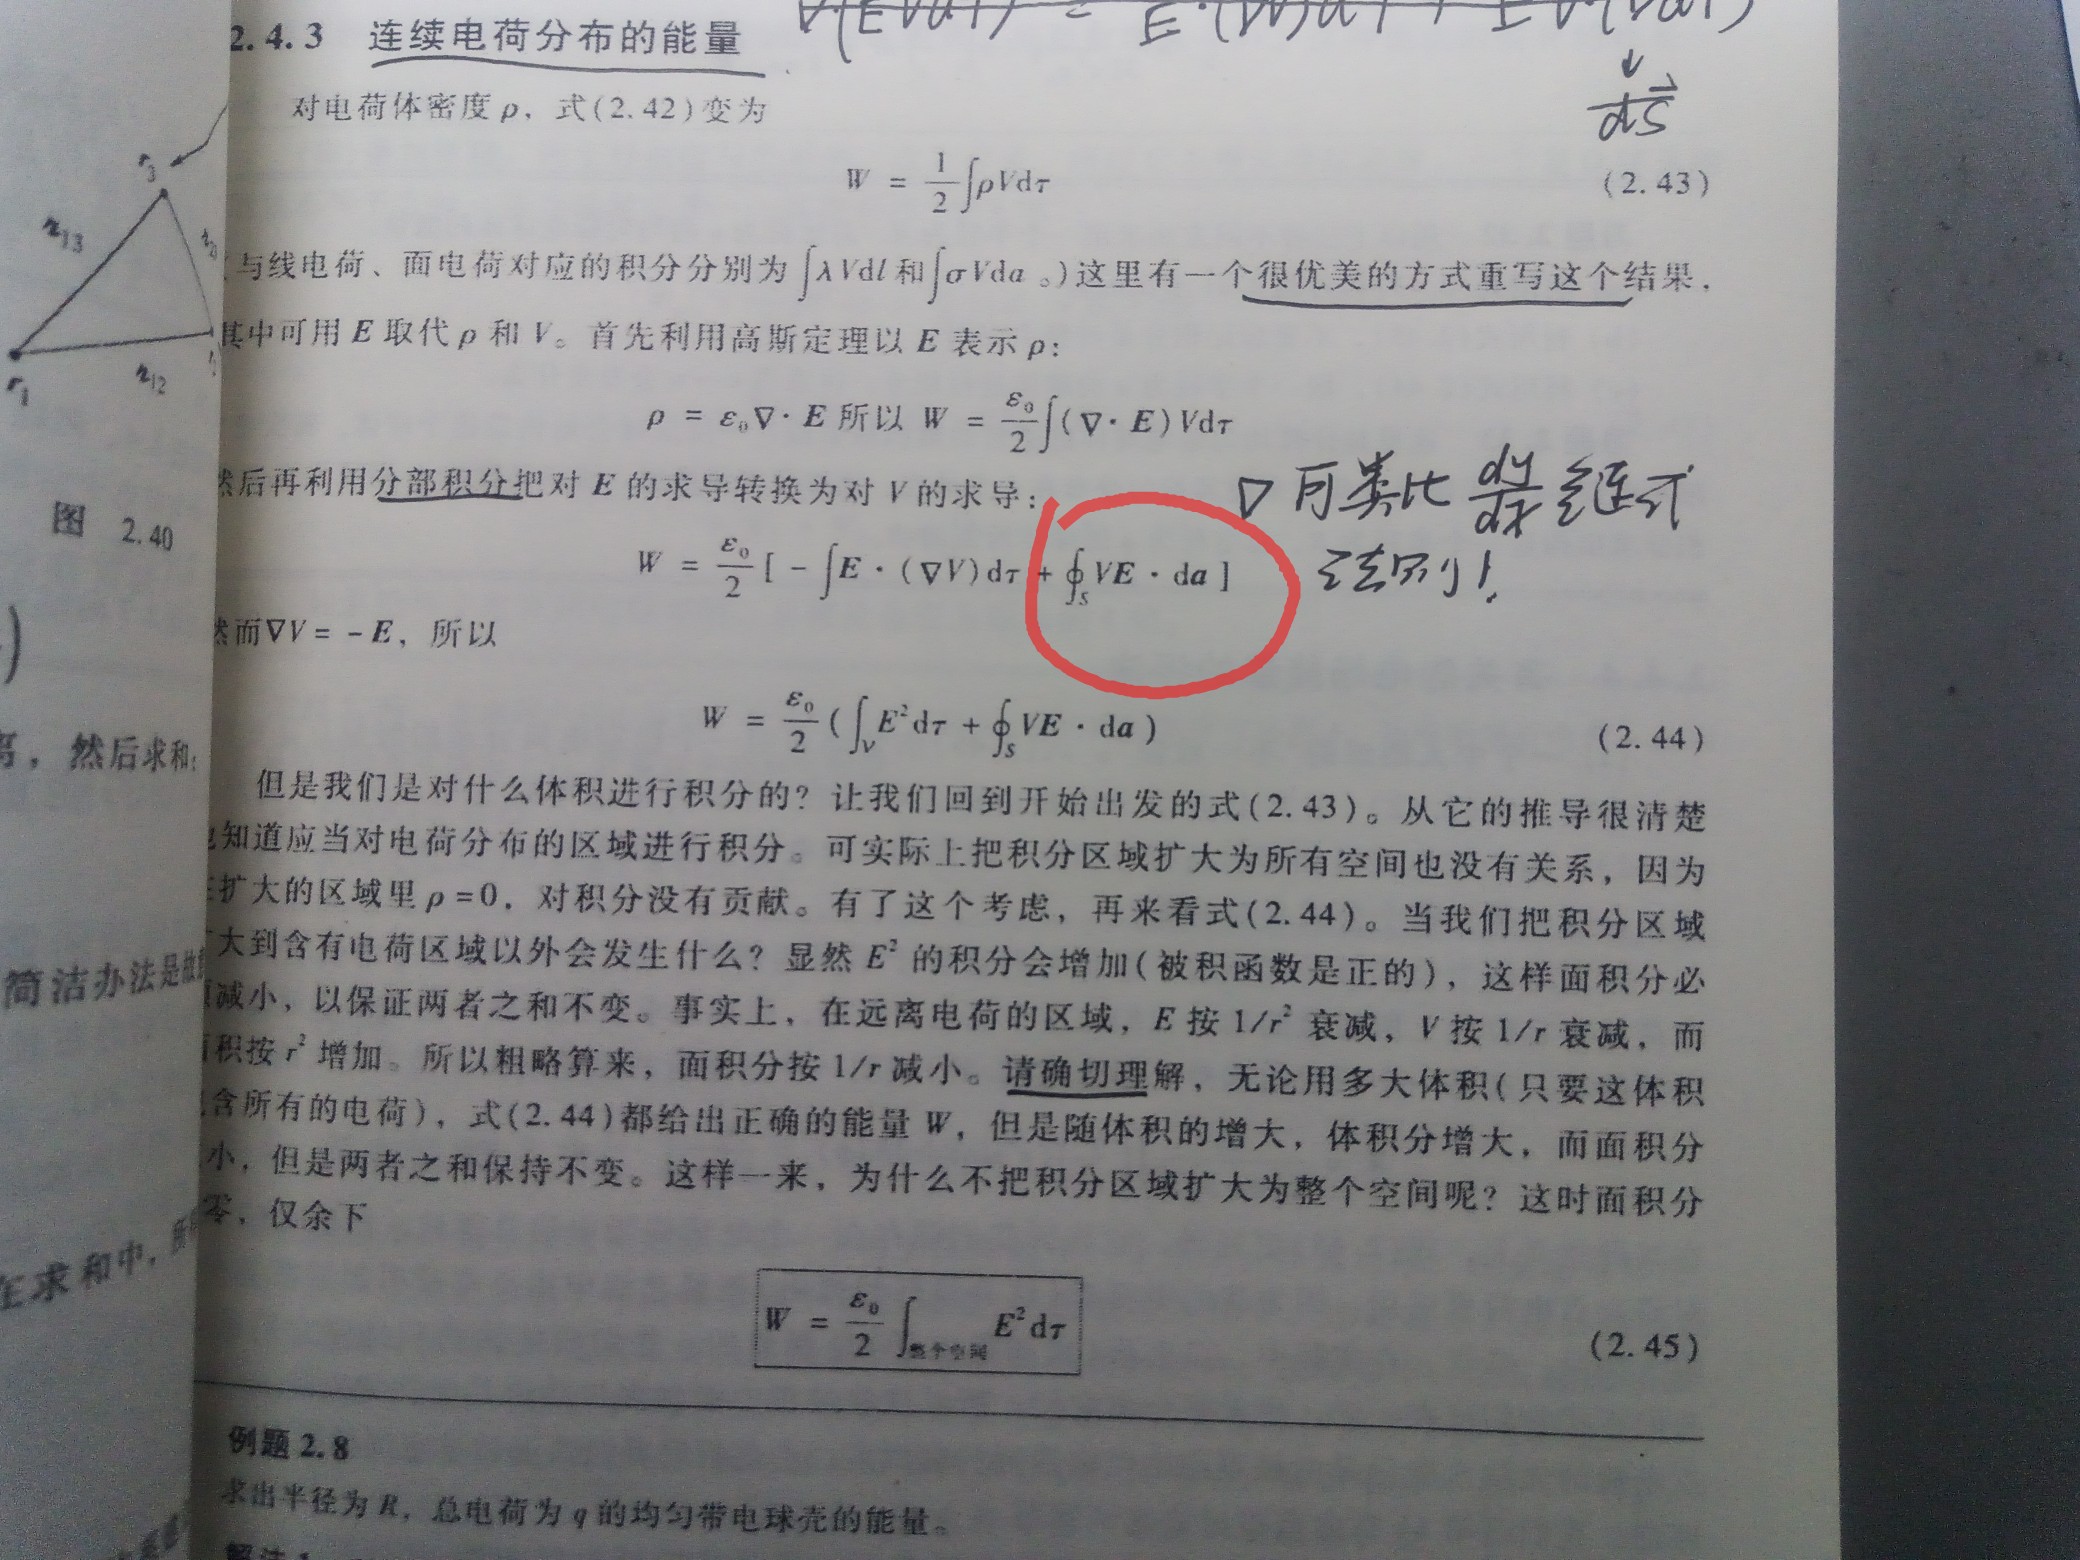 2.4.3 连续电荷分布的能量
对电荷体密度ρ，式(2.42)变为
dS
W = 1/2 ∫ρVdτ (2.43)
与线电荷、面电荷对应的积分分别为∫λVdl和∫σVda。)这里有一个很优美的方式重写这个结果，
其中可用E取代ρ和V。首先利用高斯定理以E表示ρ：
ρ = ε₀∇·E 所以 W = ε₀/2 ∫(∇·E)Vdτ
然后再利用分部积分把对E的求导转换为对V的求导：
∇可类比 dy/dx
法则！
W = ε₀/2 [ - ∫E·(∇V)dτ + ∮s VE·da ]
然而∇V = -E，所以
W = ε₀/2 ( ∫v E²dτ + ∮s VE·da ) (2.44)
但是我们是对什么体积进行积分的？让我们回到开始出发的式(2.43)。从它的推导很清楚
知道应当对电荷分布的区域进行积分。可实际上把积分区域扩大为所有空间也没有关系，因为
扩大的区域里ρ=0，对积分没有贡献。有了这个考虑，再来看式(2.44)。当我们把积分区域
大到含有电荷区域以外会发生什么？显然E²的积分会增加(被积函数是正的)，这样面积分必
减小，以保证两者之和不变。事实上，在远离电荷的区域，E按1/r²衰减，V按1/r衰减，而
积按r²增加。所以粗略算来，面积分按1/r减小。请确切理解，无论用多大体积(只要这体积
含所有的电荷)，式(2.44)都给出正确的能量W，但是随体积的增大，体积分增大，而面积分
小，但是两者之和保持不变。这样一来，为什么不把积分区域扩大为整个空间呢？这时面积分
零，仅余下
W = ε₀/2 ∫整个空间 E²dτ (2.45)
例题2.8
求出半径为R，总电荷为q的均匀带电球壳的能量。
r₃
r₁
𝓇₁₃
𝓇₁₂
图 2.40
，然后求和：
简洁办法是
在求和中，